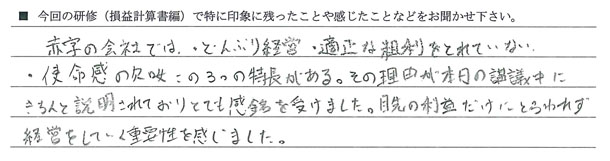 ■ 今回の研修(損益計算書編)で特に印象に残ったことや感じたことなどをお聞かせ下さい。
赤字の会社では、・どんぶり経営・適正な粗利をとれていない
・使命感の欠如 この3つの特長がある。その理由が本日の講議中に
きちんと説明されておりとても感銘を受けました。目先の利益だけにとらわれず
経営をしていく重要性を感じました。